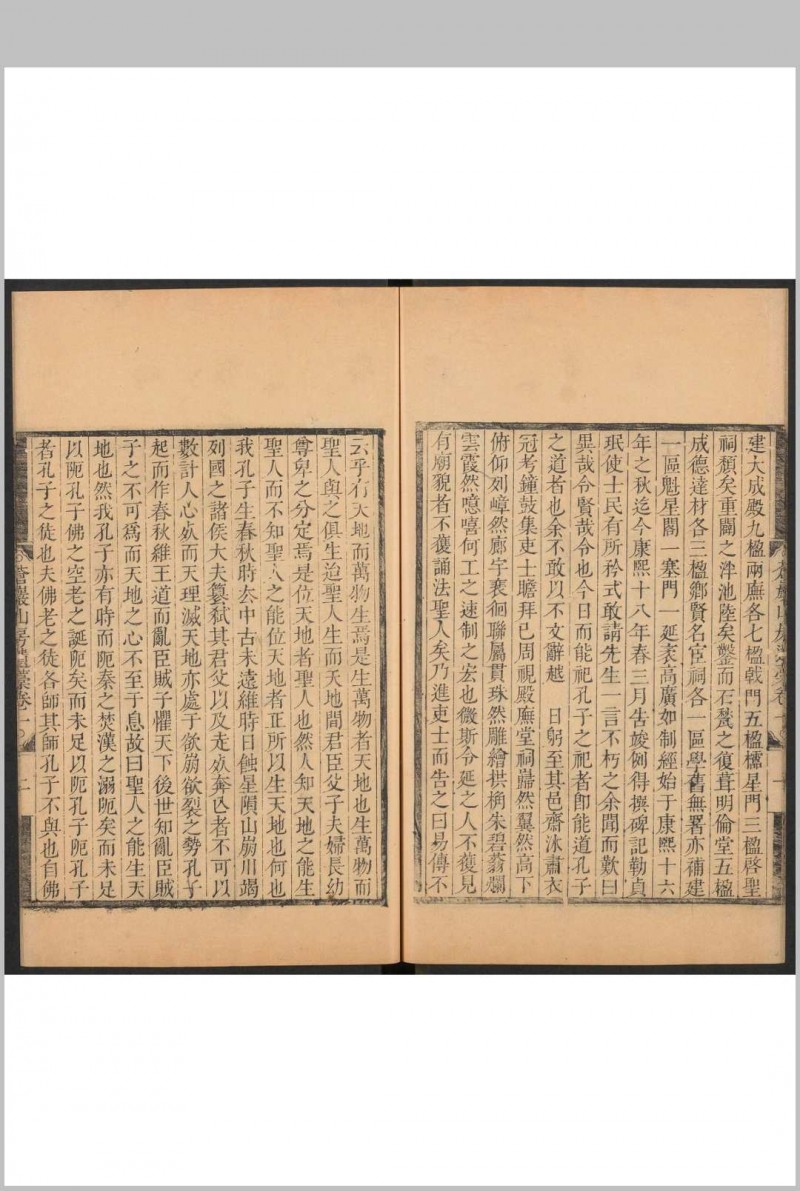 建大成殿九楹兩廡各七楹戟門五楹櫺星門三楹啓聖
祠頹矣重闢之泮池陸矣鑿而石甃之復葺明倫堂五楹
成德達材各三楹鄉賢名宦祠各一區學舊無署亦補建
一區魁星閣一塞門一延袤高廣如制經始于康熙十六
年之秋迄今康熙十八年春三月告竣例得撰碑記勒貞
珉使士民有所矜式敢請先生一言不朽之余聞而歎曰
異哉令賢哉令也今日而能祀孔子之祀者卽能道孔子
之道者也余不敢以不文辭越　日躬至其邑齋沐肅衣
冠考鐘鼓集吏士瞻拜已周視殿廡堂祠巋然翼然高下
俯仰列嶂然廊宇裵徊聯屬貫珠然雕繪拱桷朱碧蓊爛
雲霞然噫嘻何工之速制之宏也微斯令延之人不獲見
有廟貌者不獲誦法聖人矣乃進吏士而告之曰易傳不
云乎有天地而萬物生焉是生萬物者天地也生萬物而
聖人與之俱生迨聖人生而天地間君臣父子夫婦長幼
尊卑之分定焉是位天地者聖人也然人知天地之能生
聖人而不知聖人之能位天地者正所以生天地也何也
我孔子生春秋時去中古未遠維時日蝕星隕山崩川竭
列國之諸侯大夫簒弑其君父以及走欤奔亾者不可以
數計人心欤而天理滅天地亦處于欲崩欲裂之勢孔子
起而作春秋維王道而亂臣賊子懼天下後世知亂臣賊
子之不可爲而天地之心不至于息故曰聖人之能生天
地也然我孔子亦有時而阨秦之焚漢之溺阨矣而未足
以阨孔子佛之空老之誕阨矣而未足以阨孔子阨孔子
者孔子之徒也夫佛老之徒各師其師孔子不與也自佛
蒼巖山房 藁卷一
二